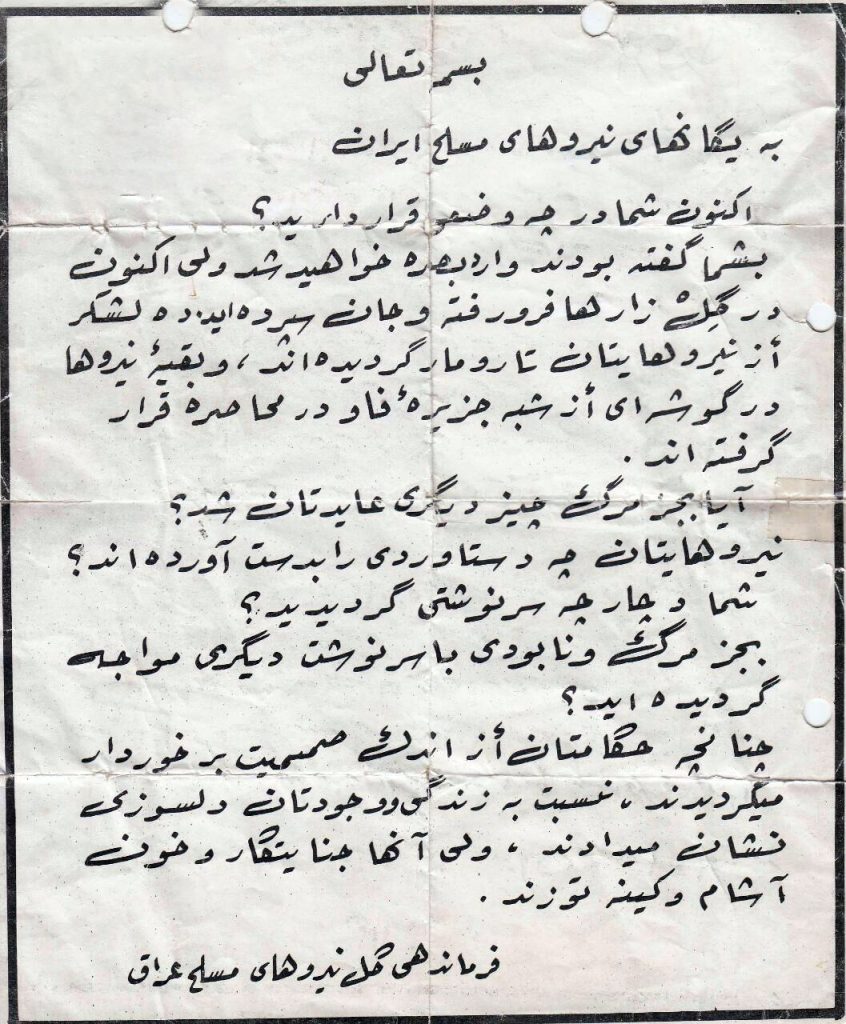 بسم تعالی
به یگانهای نیروهای مسلح ایران
اکنون شما در چه وضعی قرار دارید؟
بشما گفته بودند وارد بصره خواهید شد ولی اکنون
در گِل زارها فرو رفته و جان سپرده اید. ده لشکر
أز نیروهایتان تارومار گردیده اند، و بقیهٔ نیروها
در گوشه ای أز شبه جزیرهٔ فاو در محاصره قرار
گرفته اند.
آیا بجز مرگ چیز دیگری عایدتان شد؟
نیروهایتان چه دستاوردی را بدست آورده اند؟
شما دچار چه سرنوشتی گردیدید؟
بجز مرگ ونابودی با سرنوشت دیگری مواجه
گردیده اید؟
چنانچه حکامتان أز اندک صمیمیت برخوردار
میگردیدند، نسبت به زندگی ووجودتان دلسوزی
نشان میدادند، ولی آنها جنایتکار و خون
آشام وکینه توزند.
فرماندهی کل نیروهای مسلح عراق